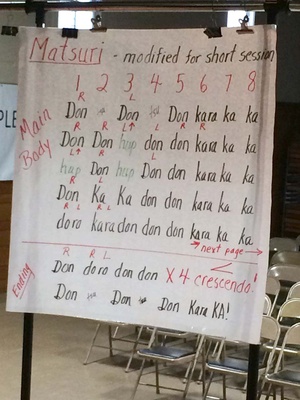 Matsuri - modified for short session
1 2 3 4 5 6 7 8
R R L
Main Body
Don Don Don kara ka ka
R L↑ L R R
Don Don hup don don kara ka ka
L↑ R L
hup Don hup Don don kara ka ka
Don Ka Ka don don kara ka ka
R L R L
doro kara don don don kara ka ka
→ next page →
R R L
Ending
Don doro don don X 4 crescendo!
Don Don Don Kara KA!
PLE